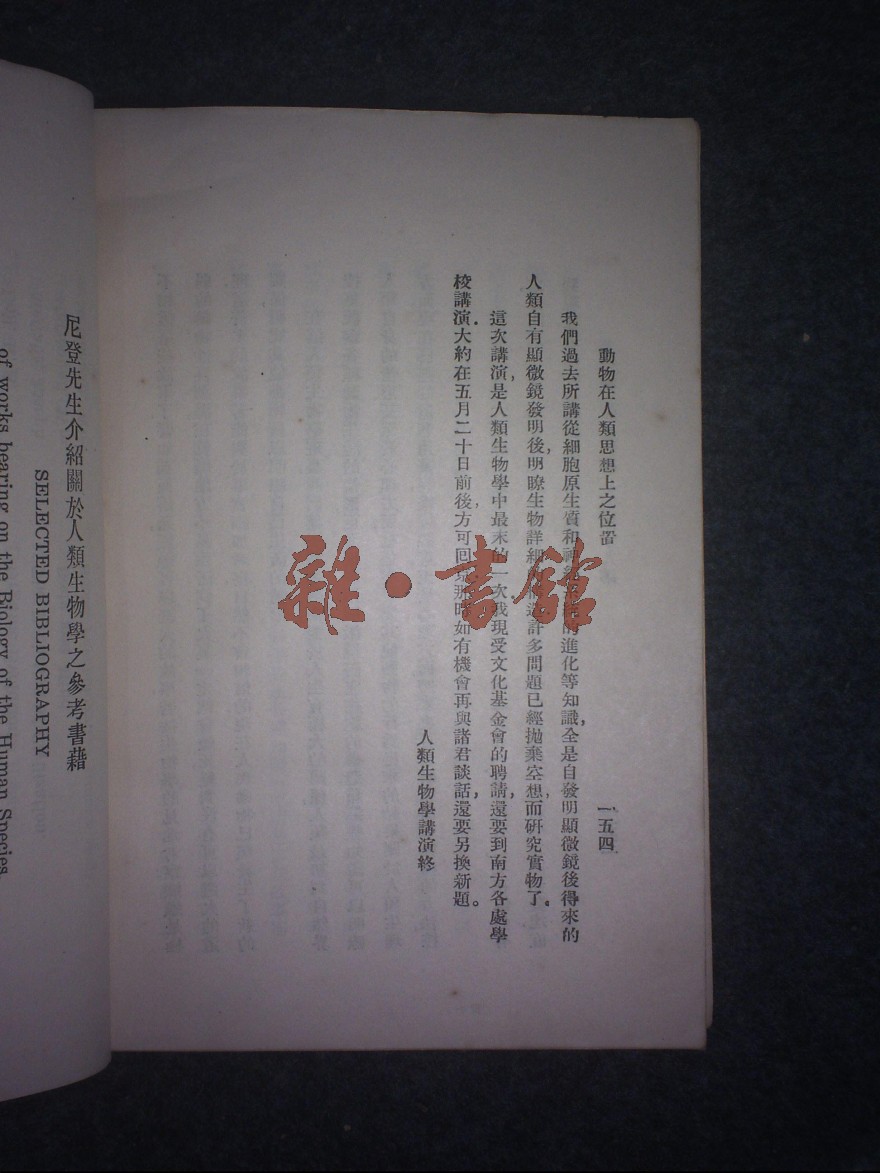 動物在人類思想上之位置
一五四
我們過去所講從細胞原生質和神進化等知識，全是自發明顯微鏡後得來的
人類自有顯微鏡發明後，明瞭生物詳細許多問題已經拋棄空想，而研究實物了。
這次講演，是人類生物學中最末的一次，我現受文化基金會的聘請，還要到南方各處學
校講演．大約在五月二十日前後，方可回京那時如有機會再與諸君談話，還要另換新題。
人類生物學講演終
尼登先生介紹關於人類生物學之參考書藉
SELECTED BIBLIOGRAPHY
of works bearing on the Biology of the Human Species.
雜·書館